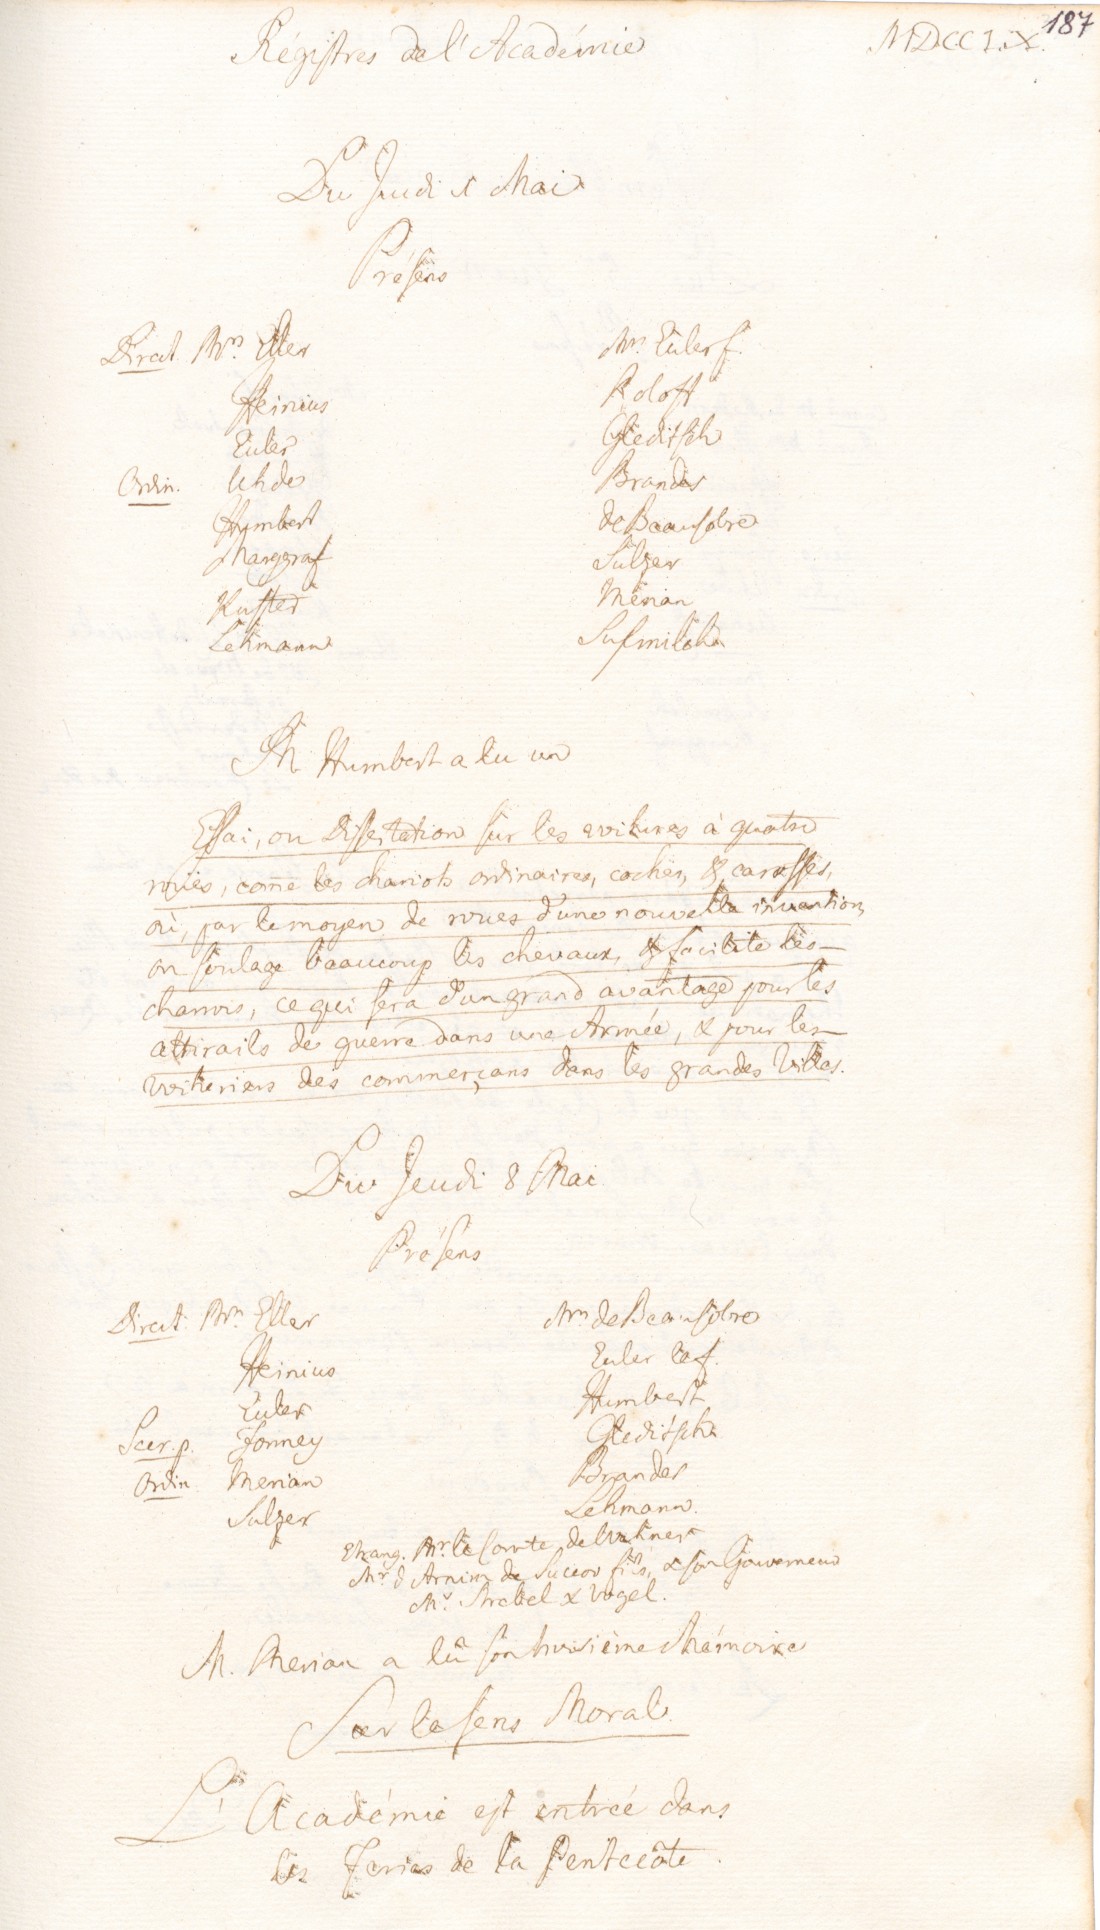 187
Régistres de l'Académie MDCCLX.
Du Jeudi 1 Mai
Présens
Direct. Mrs. Eller
Heinius
Euler
Ordin. Uhde
Humbert
Marggraf
Kuster
Lehmann
Mrs. Euler f.
Roloff
Gleditsch
Brandes
de Beausobre
Sulzer
Mérian
Susmilch
M. Humbert a lu un
Essai, ou Dissertation sur les voitures à quatre
rouës, come les chariots ordinaires, coches, & carosses,
où, par le moyen de roues d'une nouvelle invention,
on soulage beaucoup les chevaux, & facilite les
charrois, ce qui sera d'un grand avantage pour les
attirails de guerre dans une Armée, & pour les
voituriers des commerçans dans les grandes Villes.
Du Jeudi 8 Mai
Présens
Direct. Mrs. Eller
Heinius
Euler
Secr. p. Formey
Ordin. Merian
Sulzer
Mrs. de Beausobre
Euler le f.
Humbert
Gleditsch
Brandes
Lehmann.
Etrang. Mr. le Comte de
Mr. d'Arnim de Sucow fils, & son Gouverneur
Mrs. Strebel & Vogel.
M. Merian a lû son troisième Mémoire
Sur le sens Moral.
L'Académie est entrée dans
les Feries de la Pentecôte.